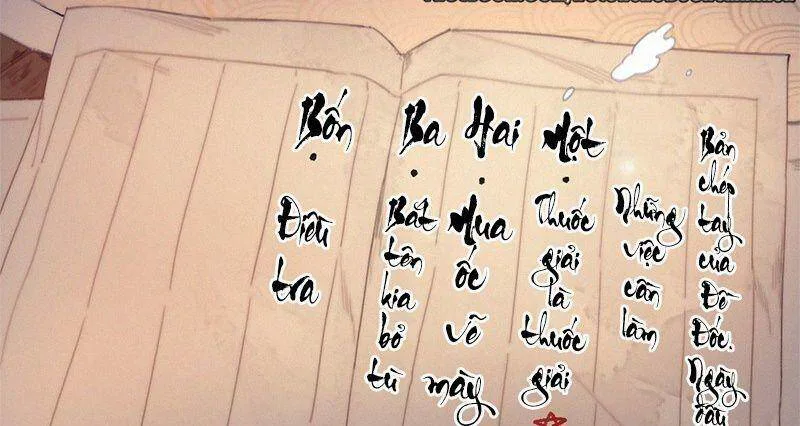 Bản chép tay của Đề Đốc. Ngày đầu
Những việc cần làm
Một . Thuốc giải là thuốc giải
Hai . Mua ốc vẽ mày
Ba . Bắt tên kia bỏ tù
Bốn . Điều tra